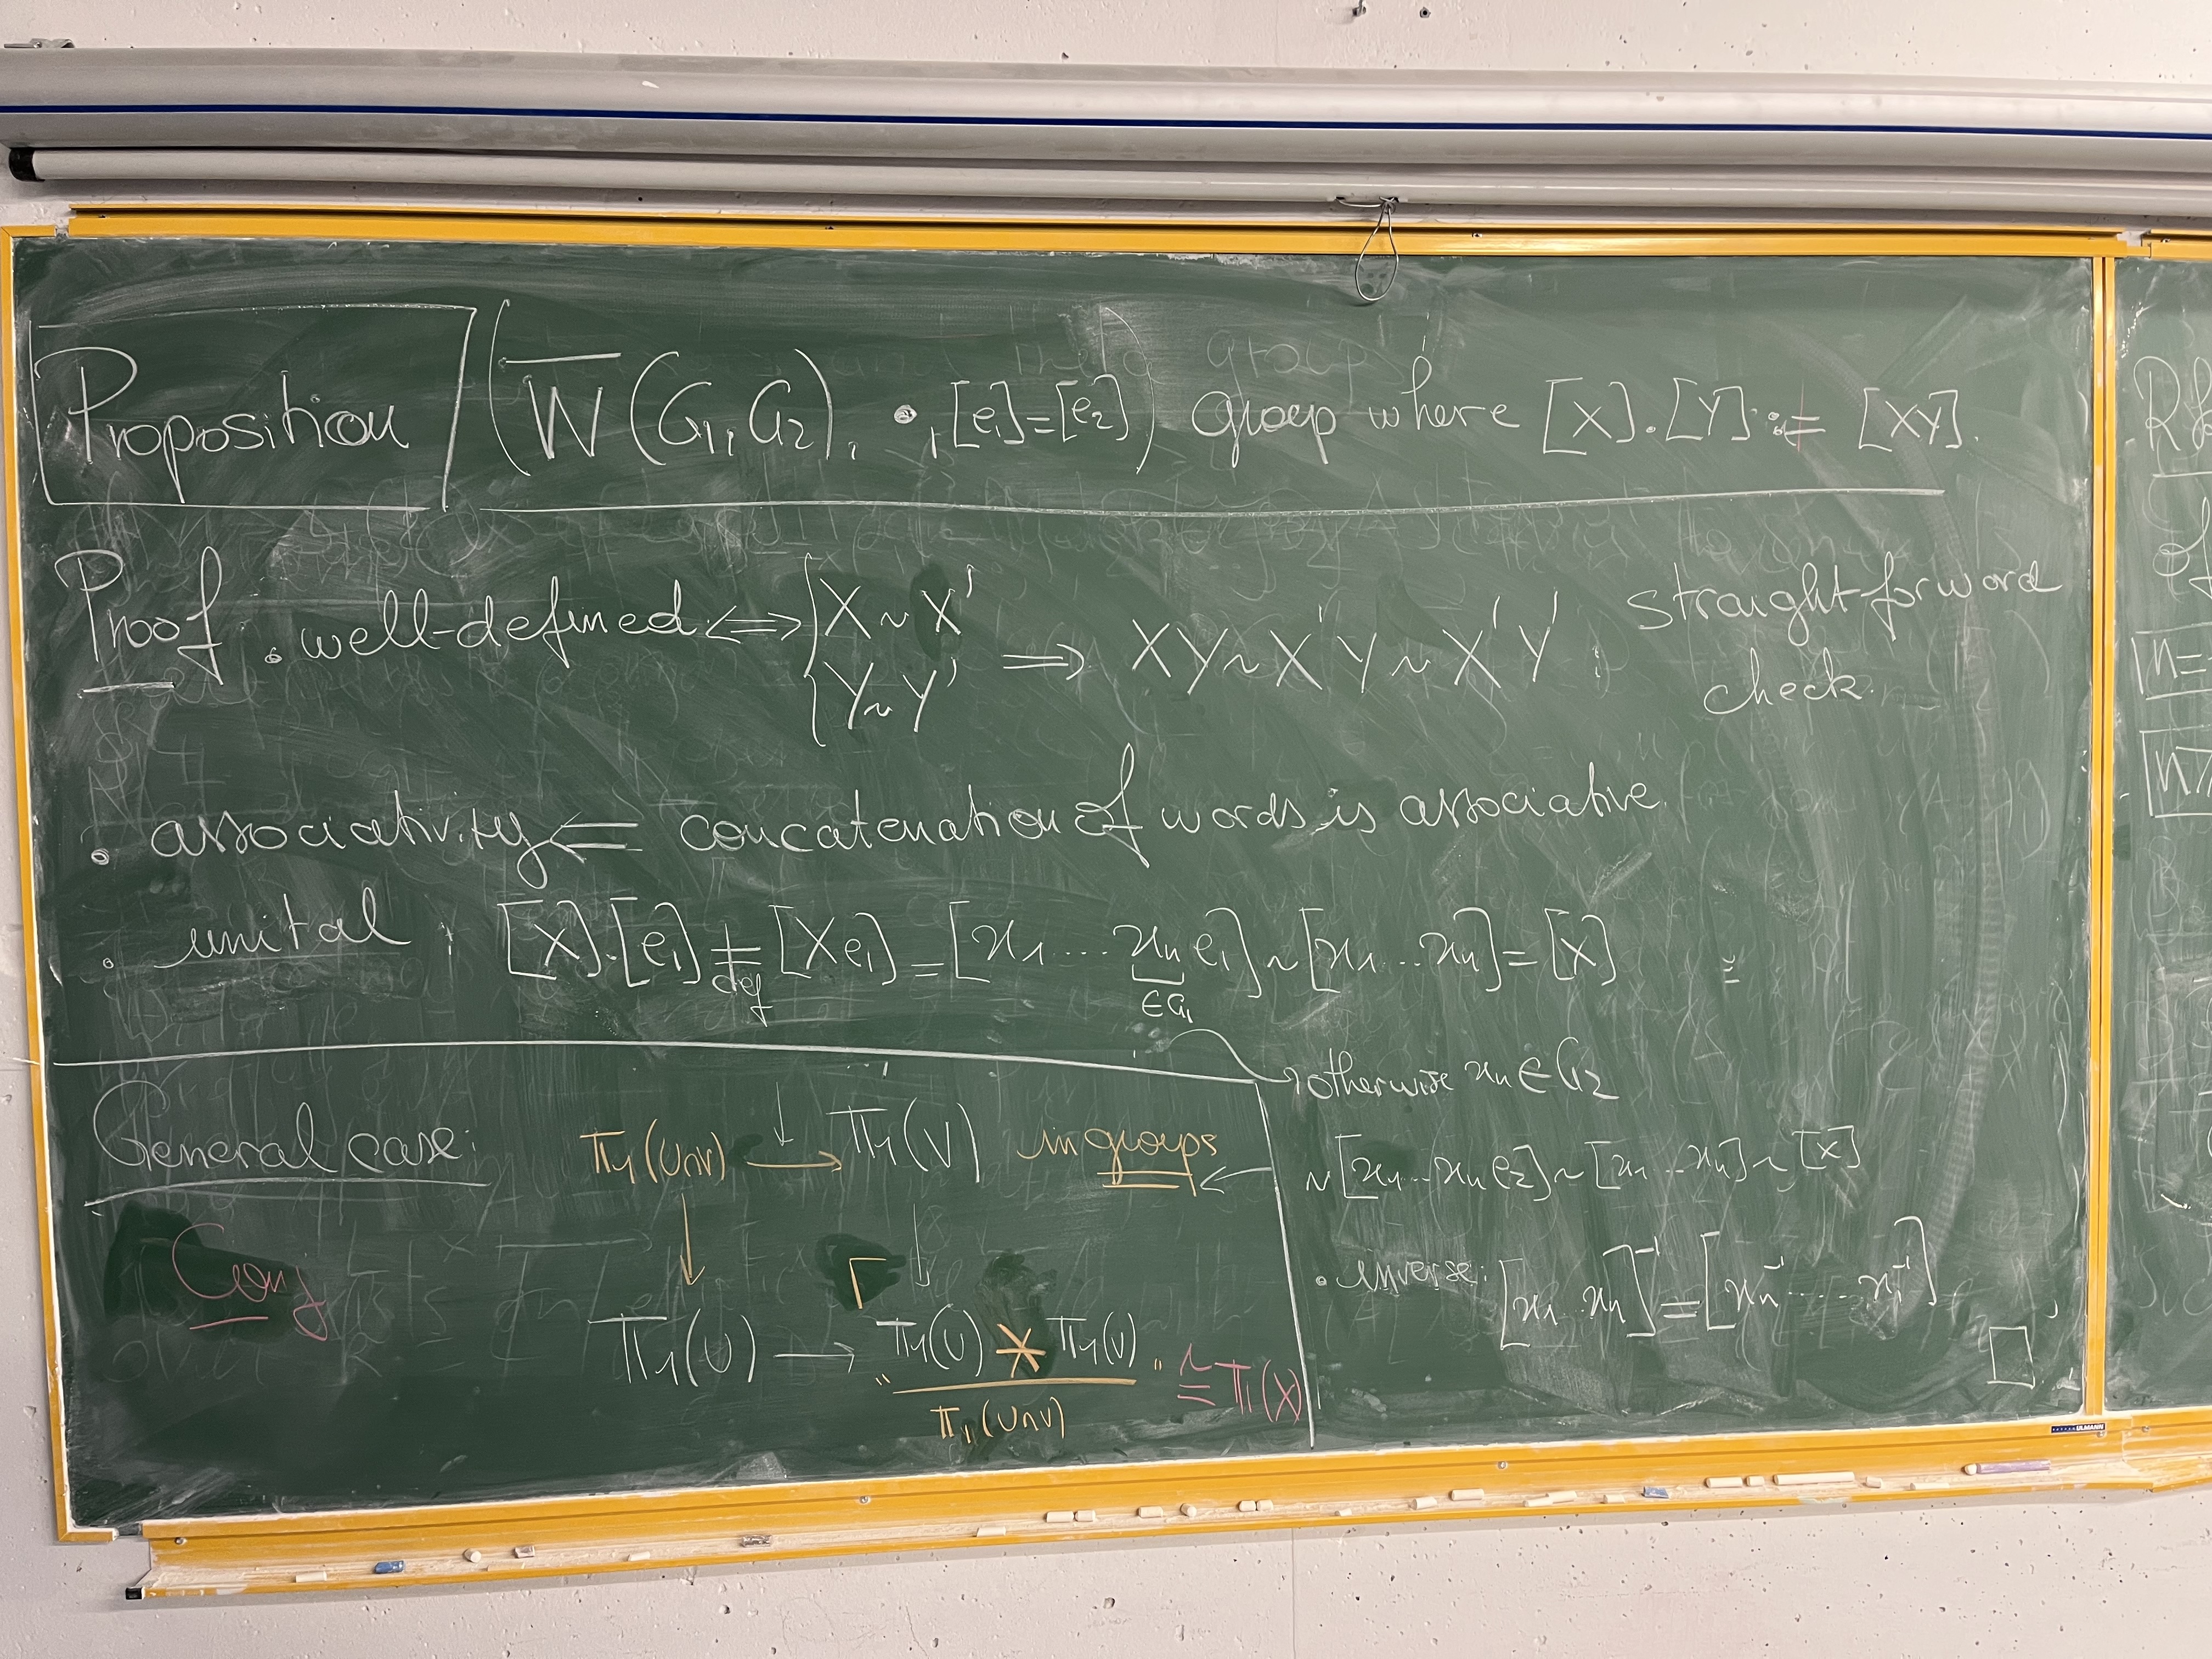 Proposition ( W̅(G₁,G₂), •, [e₁]=[e₂] ) group where [X].[Y] := [XY].
Proof . well-defined ⟺ { X ~ X' ⟹ XY ~ X'Y ~ X'Y' : straight-forward
Y ~ Y' check.
. associativity ⟸ concatenation of words is associative.
. unital : [X].[e₁] = [Xe₁] = [x₁ .... xₙ e₁] ~ [x₁ ... xₙ] = [X]
def ∈G₁
otherwise xₙ ∈ G₂
~ [x₁ ... xₙ e₂] ~ [x₁ ... xₙ] ~ [X]
. inverse: [x₁ ... xₙ]⁻¹ = [xₙ⁻¹ ..... x₁⁻¹]
□
General case: π₁(U∩V) → π₁(V) in groups
↓ ↓
Conj
π₁(U) → "π₁(U) * π₁(V)" ≅ π₁(X)
π₁(U∩V)
ULMANN